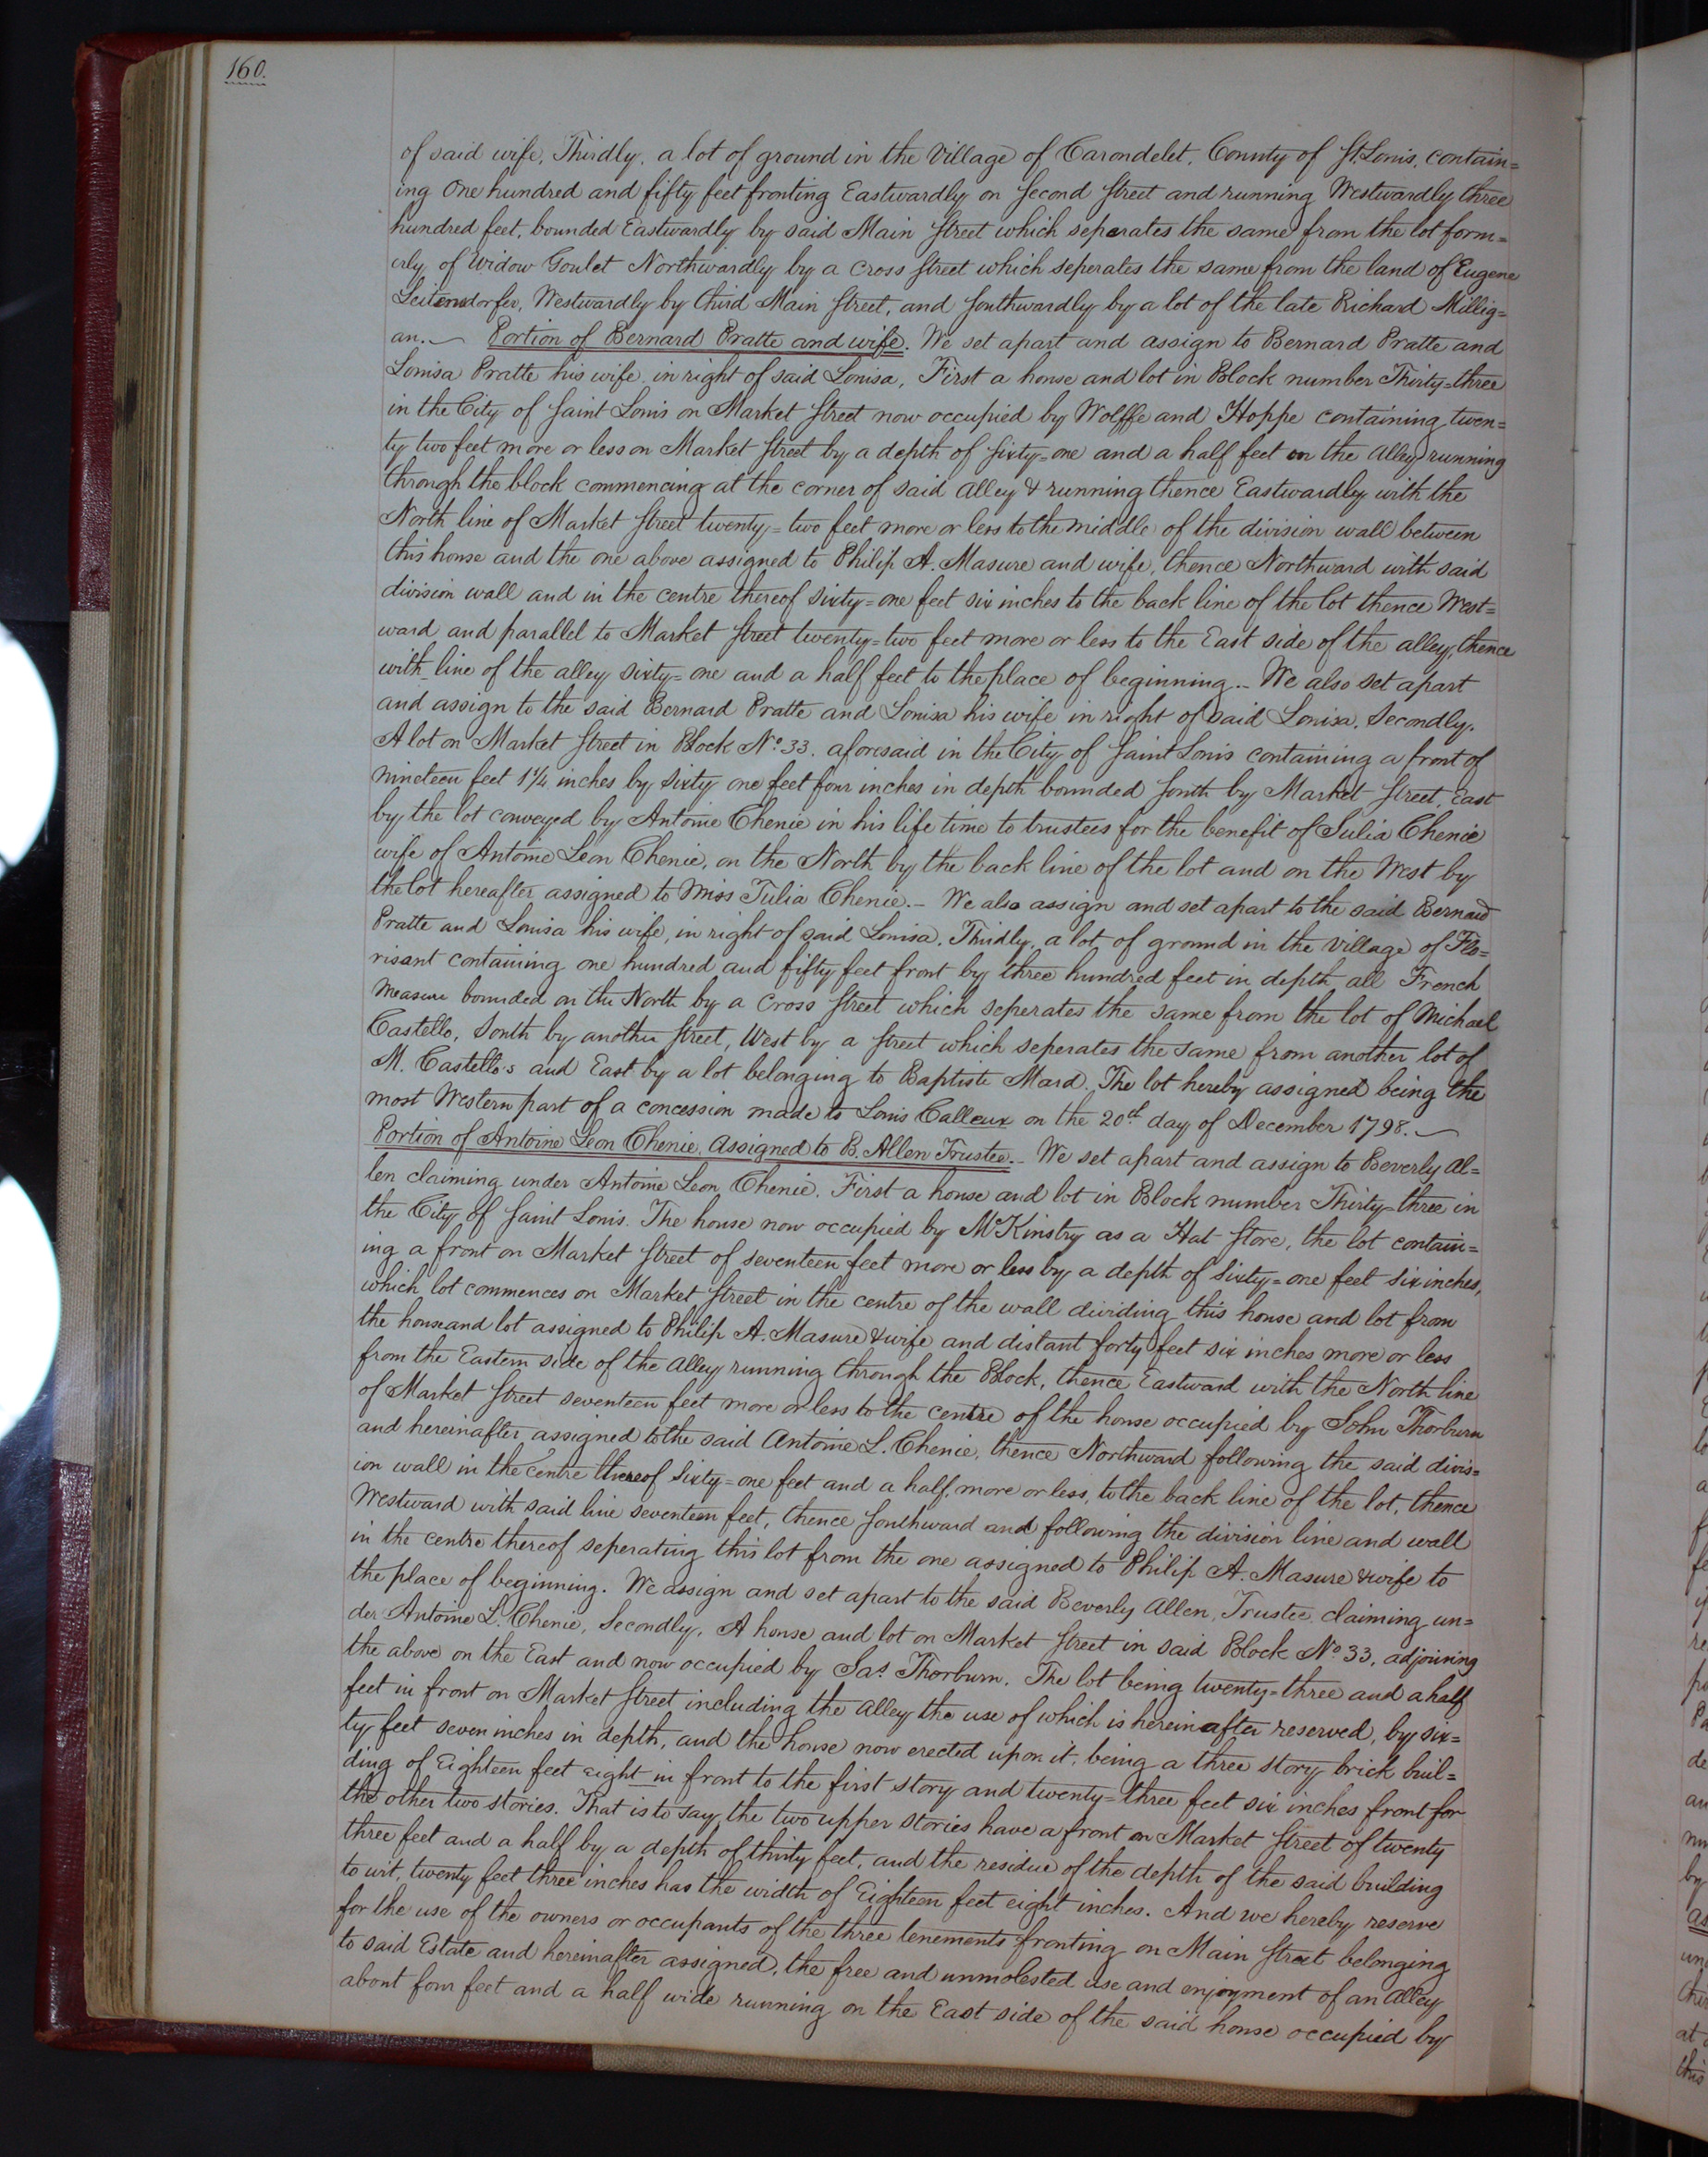 160.
of said wife, Thirdly, a lot of ground in the Village of Carondelet, County of St. Louis, contain=
ing One hundred and fifty feet fronting Eastwardly on Second Street and running Westwardly three
hundred feet, bounded Eastwardly by said Main Street which seperates the same from the lot form=
erly of Widow Goulet Northwardly by a Cross Street which seperates the same from the land of Eugene
Leitensdorfer, Westwardly by third Main Street, and Southwardly by a lot of the late Richard Millig=
an. — Portion of Bernard Pratte and wife. We set apart and assign to Bernard Pratte and
Louisa Pratte his wife in right of said Louisa, First a house and lot in Block number Thirty=three
in the City of Saint Louis on Market Street now occupied by Wolffe and Hoppe containing twen=
ty two feet more or less on Market Street by a depth of Sixty=one and a half feet on the Alley running
through the block commencing at the corner of said Alley & running thence Eastwardly with the
North line of Market Street twenty=two feet more or less to the middle of the division wall between
this house and the one above assigned to Philip A. Masure and wife, thence Northward with said
division wall and in the centre thereof sixty=one feet six inches to the back line of the lot thence West=
ward and parallel to Market Street twenty=two feet more or less to the East side of the alley, thence
with line of the alley sixty=one and a half feet to the place of beginning. — We also set apart
and assign to the said Bernard Pratte and Louisa his wife in right of said Louisa, Secondly.
A lot on Market Street in Block No. 33. aforesaid in the City of Saint Louis containing a front of
nineteen feet 1¼ inches by sixty one feet four inches in depth bounded South by Market Street, East
by the lot conveyed by Antoine Chenie in his life time to trustees for the benefit of Julia Chenie
wife of Antoine Leon Chenie, on the North by the back line of the lot and on the West by
the lot hereafter assigned to Miss Julia Chenie. — We also assign and set apart to the said Bernard
Pratte and Louisa his wife, in right of said Louisa, Thirdly, a lot of ground in the village of Flo=
risant containing one hundred and fifty feet front by three hundred feet in depth all French
measure bounded on the North by a Cross Street which seperates the same from the lot of Michael
Castello, South by another Street, West by a Street which seperates the same from another lot of
M. Castello's and East by a lot belonging to Baptiste Mard. The lot hereby assigned being the
most Western part of a concession made to Louis Calleux on the 20th day of December 1798. —
Portion of Antoine Leon Chenie, Assigned to B. Allen Trustee. — We set apart and assign to Beverly Al=
len claiming under Antoine Leon Chenie. First a house and lot in Block number Thirty=three in
the City of Saint Louis. The house now occupied by McKinstry as a Hat Store, the lot contain=
ing a front on Market Street of seventeen feet more or less by a depth of Sixty=one feet six inches,
which lot commences on Market Street in the centre of the wall dividing this house and lot from
the house and lot assigned to Philip A. Masure & wife and distant forty feet six inches more or less
from the Eastern side of the Alley running through the Block, thence Eastward with the North line
of Market Street seventeen feet more or less to the centre of the house occupied by John Thorburn
and hereinafter assigned to the said Antoine L. Chenie, thence Northward following the said divis=
ion wall in the centre thereof Sixty=one feet and a half, more or less, to the back line of the lot, thence
Westward with said line seventeen feet, thence Southward and following the division line and wall
in the centre thereof seperating this lot from the one assigned to Philip A. Masure & wife to
the place of beginning. We assign and set apart to the said Beverly Allen, Trustee, claiming un=
der Antoine L. Chenie, Secondly, A house and lot on Market Street in said Block No. 33, adjoining
the above on the East and now occupied by Jas. Thorburn. The lot being twenty=three and a half
feet in front on Market Street including the Alley the use of which is hereinafter reserved, by six=
ty feet seven inches in depth, and the house now erected upon it, being a three story brick buil=
ding of Eighteen feet eight in front to the first story and twenty=three feet six inches front for
the other two stories. That is to say, the two upper stories have a front on Market Street of twenty
three feet and a half by a depth of thirty feet, and the residue of the depth of the said building
to wit, twenty feet three inches has the width of Eighteen feet eight inches. And we hereby reserve
for the use of the owners or occupants of the three tenements fronting on Main Street belonging
to said Estate and hereinafter assigned, the free and unmolested use and enjoyment of an Alley
about four feet and a half wide running on the East side of the said house occupied by